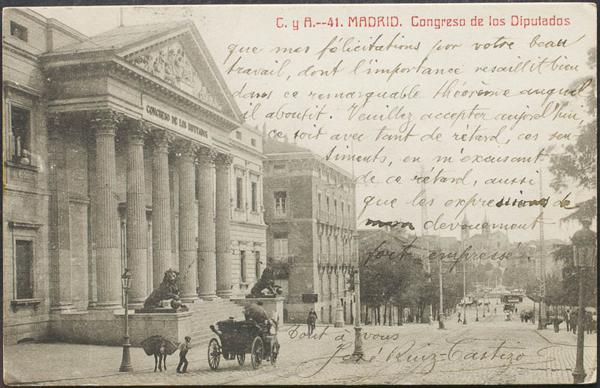 C. y A.--41. MADRID. Congreso de los Diputados
que mes félicitations por votre beau
travail, dont l'importance resaillit bien
dans ce remarquable théorème auquel
il aboutit. Veuillez accepter aujord'hui,
ce soit avec tant de rétard, ces sen
timents, en m'excusant
de ce rétard, aussi
que les expressions de
mon devouement
fort empressé.
CONGRESO DE LOS DIPUTADOS
Tout à vous
José Ruiz-Castizo